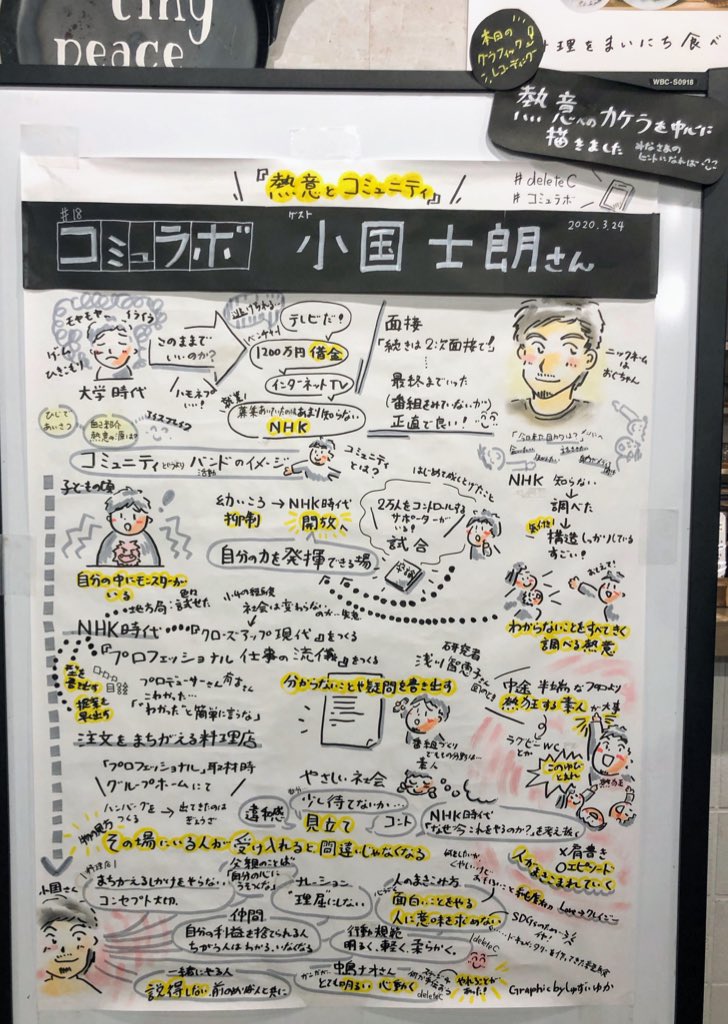 tiny
peace
理をまいにち食べ
本日の
グラフィック
レコーディング
WBC-S0918
熱意へのカケラを中心に
描きました
みなさまの
ヒントになれば
『熱意とコミュニティ』
#deleteC
#コミュラボ
#18
コミュラボ
ゲスト
小国士朗さん
2020.3.24
モヤモヤ
イライラ
ゲーム
ひきこもり
大学時代
このままで
いいのか?
ハモネプ
いい!
ベンチャー!
テレビだ!
1200万円借金
インターネットTV
あまり知らない
NHK
面接
「続きは2次面接で!」
最終までいった
(番組をみていないが)
正直で良い!
ニックネーム
は
おぐちゃん
アイスブレイク
コミュニティというよりバンドのイメージ
活動
コミュニティ
とは?
NHK 知らない
調べた
構造しっかりしている
すごい!
わからないことをすべてきく
調べる熱意
子どもの頃
自分の中にモンスターが
いる
幼いころ→NHK時代
抑制
開放へ
自分の力を発揮できる場
はじめて感じしたこと
2万人をコントロールする
サポーターが
いる!
試合
地方局:色々試せた
NHK時代
社会は変わらない
のか…
『クローズアップ現代』をつくる
『プロフェッショナル 仕事の流儀』をつくる
プロデューサーさん
こわかった…
「"わかった"と簡単に言うな」
分からないことや疑問を書き出す
研究者
浅川智恵子さん
番組づくり
素人
中途半端なプロより
熱狂する素人が大事
ラグビーWC
とか
このゆび
とまれ
注文をまちがえる料理店
「プロフェッショナル」取材時
グループホームにて
ハンバーグを
つくる
出てきたのは
ぎょうざ
違和感
やさしい社会
少し待てないか…
見立て
コント
NHK時代
「なぜ今これをやるのか?」を考え抜く
その場にいる人が受け入れると間違いじゃなくなる
×肩書き
○エピソード
人がまきこまれていく
小国さん
まちがえるしかけをやらない
コンセプト大切。
父親のことば
「自分の心に
うそつくな」
ナレーション
"理屈にしない"
人のまきこみ方
面白いことをやる
人に意味を求めない
仲間
自分の利益を捨てられる人
ちがう人はわかる、いなくなる
行動規範
明るく、軽く、柔らかく。
SDGsのため
deleteC
一緒にやる人
説得しない
中島ナオさん
とても明るい 心動く
deleteC
やれることが
あった!
Graphic by しゅずいゆか